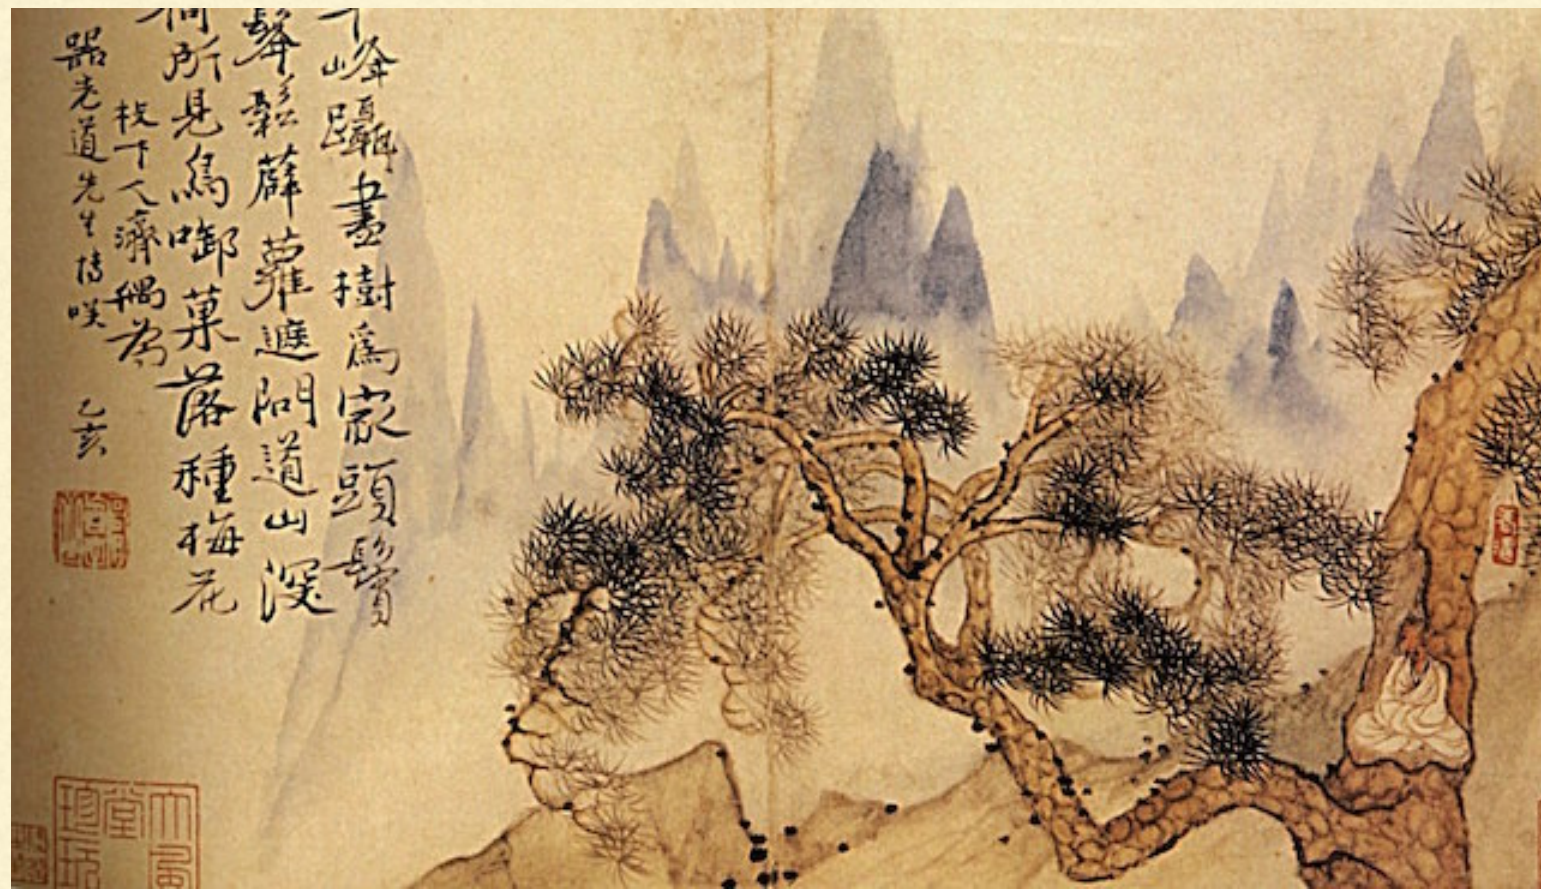 千峰躡盡樹爲家頭鬢
鬅鬆薜蘿遮問道山深
何所見鳥啣菓落種梅花
枝下人濟偶爲
噐老道先生博咲 乙亥
大風堂珍玩